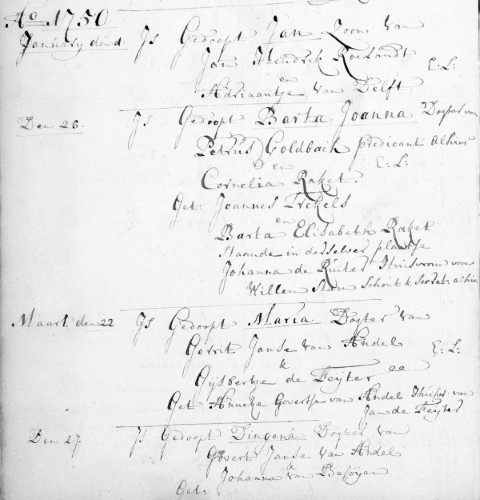 Ao. 1750.
January den 1 Js Gedoopt Jan Zoon van
Jan Hendrik Roelandt
en E: L:
Adriaantje van Delft.
Den 26. Js Gedoopt Barta Joanna Dogter van
Petrus Goldbach predicant alhier
en E: L:
Cornelia Raket.
Get: Joannes
en
Barta Elisabeth Raket
Staande in derselver plaatse
Johanna de Ruiter Huisvrouw van
Willem Schout & Secret: alhier
Maart den 22 Js Gedoopt Maria Dogter van
Gerrit Janse van Andel
& E: L:
Gijsbertje de Feyter
Get Anneke Govertse van Andel Huisvr van
Jan de Feyter
Den 27. Js Gedoopt Dingena Dogter van
Govert Janse van Andel
&
Johanna van Besoyen
Get: